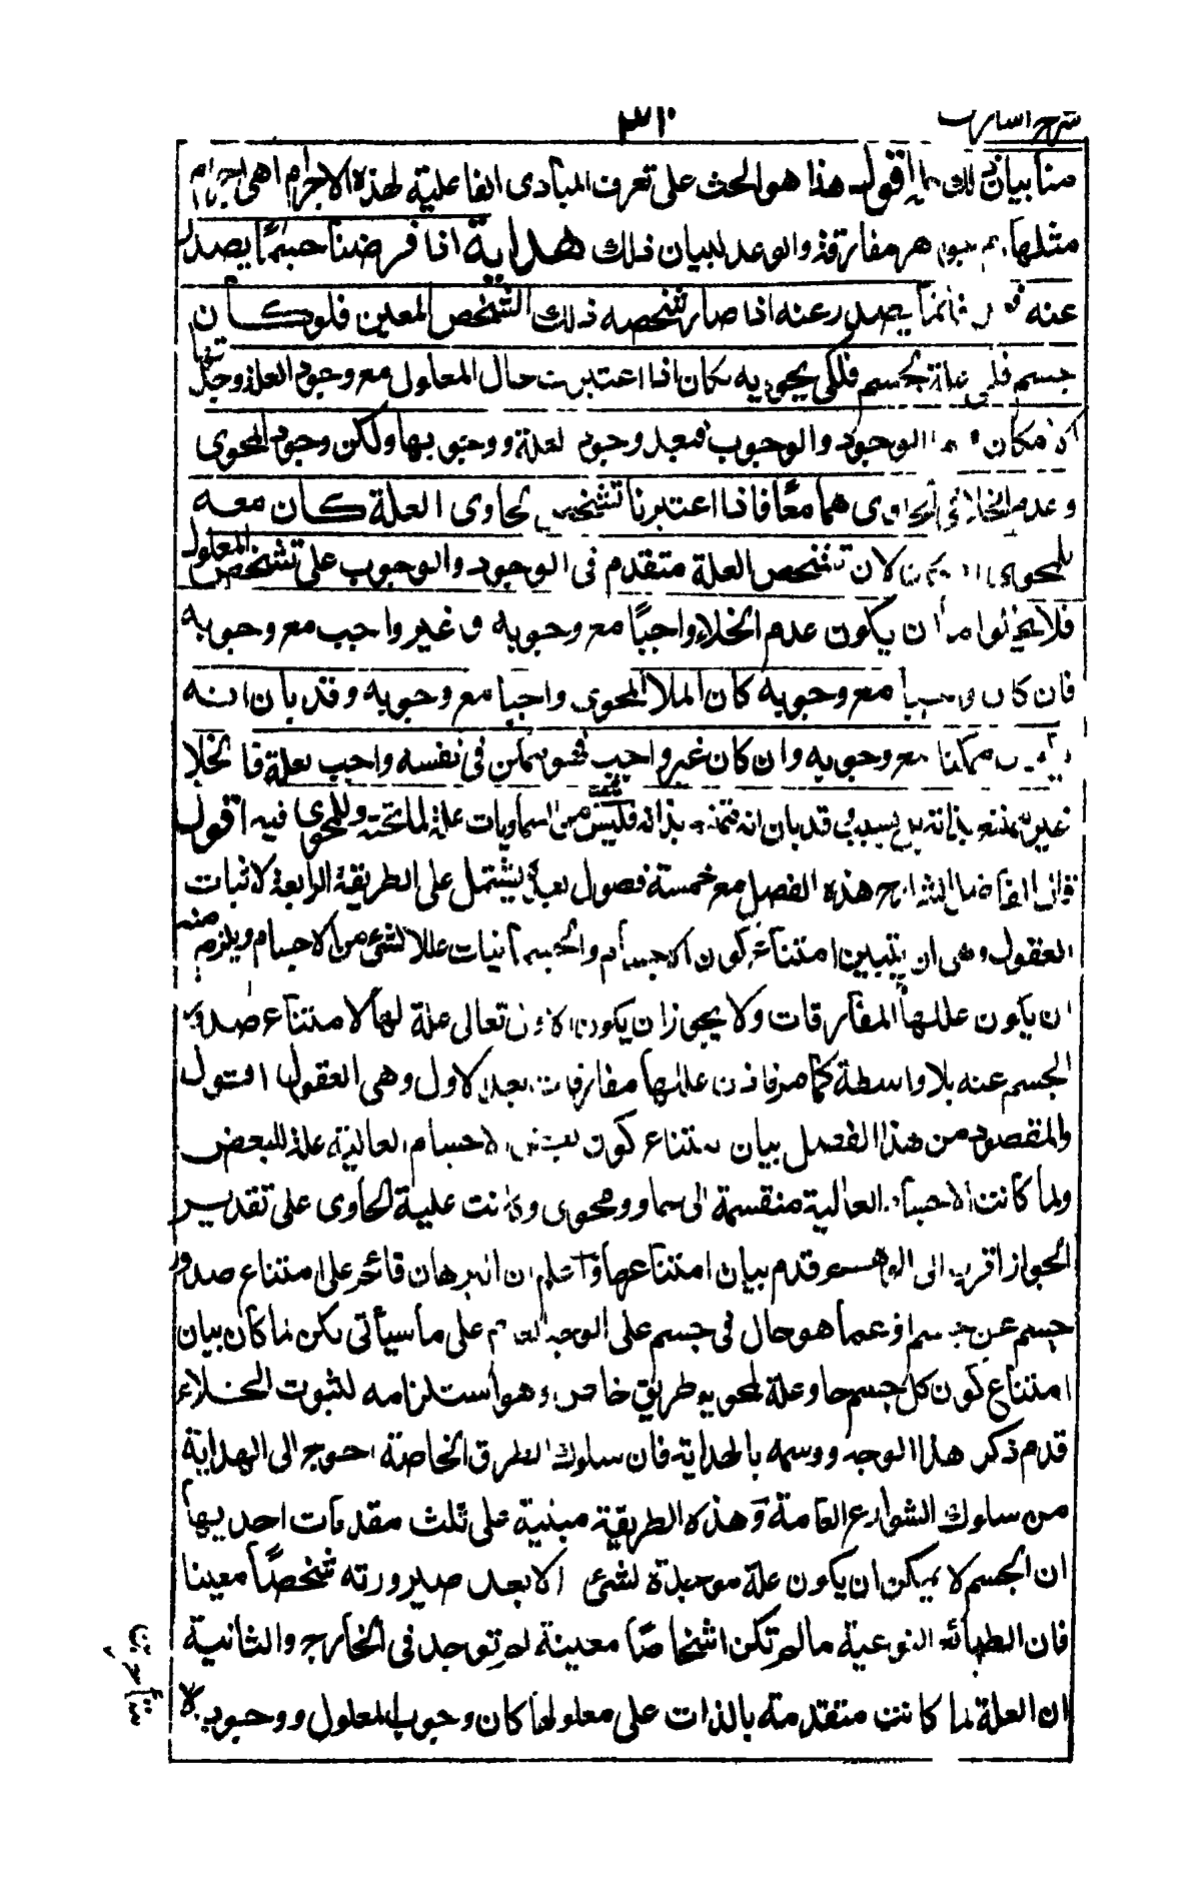 شرح اشارات
٣١٠
منا بيان ذلك اقول هذا هو الحث على تعرف المبادى الفاعلية لهذه الاجرام اهى اجرام
مثلها ام جوهر مفارقة والوعد لبيان ذلك هداية اذا فرضنا جسما يصدر
عنه فعل فانما يصدر عنه اذا صار شخصه ذلك الشخص المعين فلو كان
جسم فلكى علة لجسم فلكى يحويه لكان اذا اعتبرت حال المعلول مع وجود العلة وجدتها
الامكان الوجود والوجوب فبعد وجود العلة ووجوبها ولكن وجود المحوى
وعدم الخلاء فى الحاوى هما معًا فاذا اعتبرنا تشخص الحاوى العلة كان معه
للمحوى لان تشخص العلة متقدم فى الوجود والوجوب على تشخص المعلول
فلا يخلوا اما ان يكون عدم الخلاء واجبًا مع وجوبه او غير واجب مع وجوبه
فان كان واجبا مع وجوبه كان الملا المحوى واجبا مع وجوبه وقد بان انه
ممكنا مع وجوبه وان كان غير واجب فهو ممكن فى نفسه واجب بعلة فالخلا
غير ممتنع بذاته بل بسبب وقد بان انه ممتنع بذاته فليس شئ من السماويات علة لما تحته وللمحوى فيه اقول
قال الفاضل الشارح هذه الفصل مع خمسة فصول بعده يشتمل على الطريقة الرابعة لاثبات
العقول وهى ان يتبين امتناع كون الاجسام والجسمانيات عللا لشئ من الاجسام ويلزم منه
ان يكون عللها المفارقات ولا يجوز ان يكون الاول تعالى علة لها لامتناع صدور
الجسم عنه بلا واسطة كما مر فاذن عللها مفارقات بعد الاول وهى العقول اقول
والمقصود من هذا الفصل بيان امتناع كون بعض الاجسام العالية علة للبعض
ولما كانت الاجسام العالية منقسمة الى حاو ومحوى وكانت علية الحاوى على تقدير
الجواز اقرب الى الوهم قدم بيان امتناعها واعلم ان البرهان قائم على امتناع صدور
جسم عن جسم او عما هو حال فى جسم على الوجه العام على ما سيأتى لكن لما كان بيان
امتناع كون كل جسم حاو علة لمحويه طريق خاص وهو استلزامه لثبوت الخلاء
قدم ذكر هذا الوجه ووسمه بالهداية فان سلوك الطرق الخاصة احوج الى الهداية
من سلوك الشوارع العامة وهذه الطريقة مبنية على ثلث مقدمات احديها
ان الجسم لا يمكن ان يكون علة موجدة لشئ الا بعد صيرورته شخصًا معينا
فان الطبائع النوعية ما لم تكن اشخاصًا معينة لم توجد فى الخارج والثانية
ان العلة لما كانت متقدمة بالذات على معلولها كان وجوب المعلول ووجوده